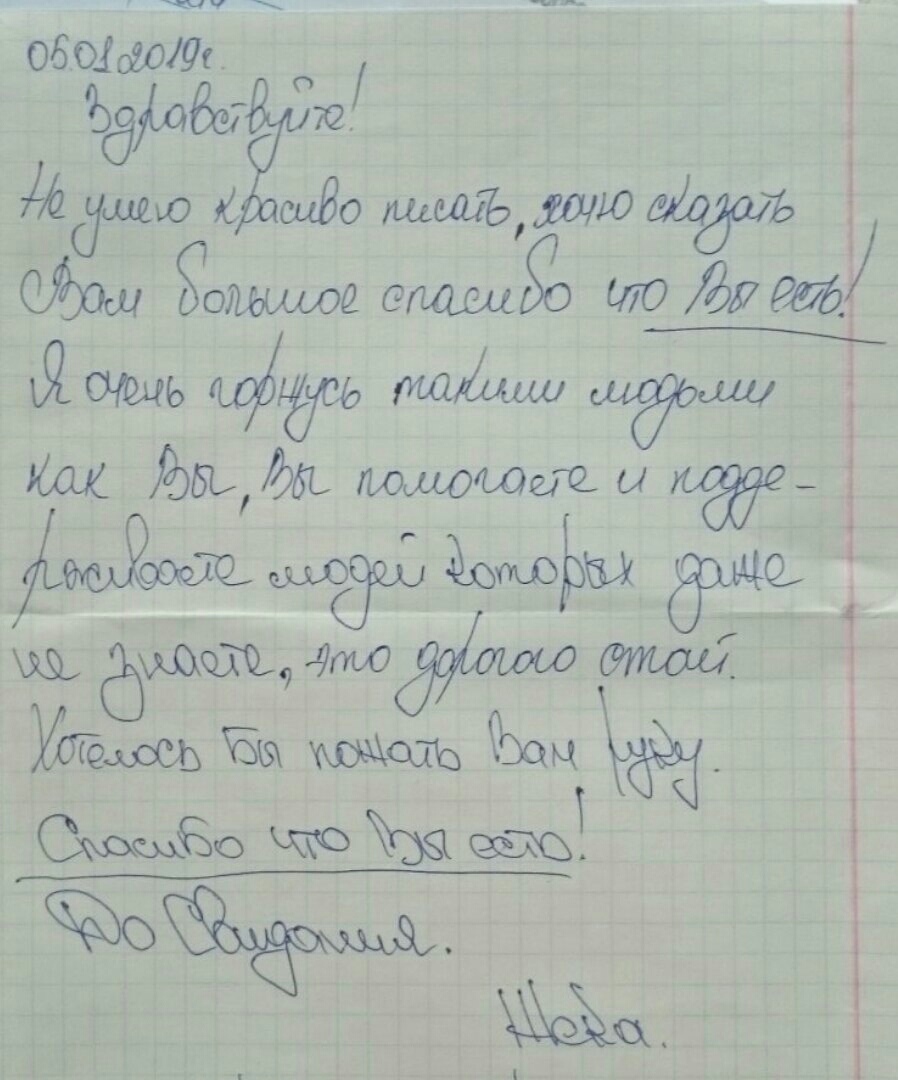 06.01.2019г.
Здравствуйте!
Не умею красиво писать, хочу сказать
Вам большое спасибо что Вы есть!
Я очень горжусь такими людьми
как Вы, Вы помогаете и подде-
рживаете людей которых даже
не знаете, это дорогого стоит.
Хотелось бы пожать Вам руку.
Спасибо что Вы есть!
До Свидания.
Жека.